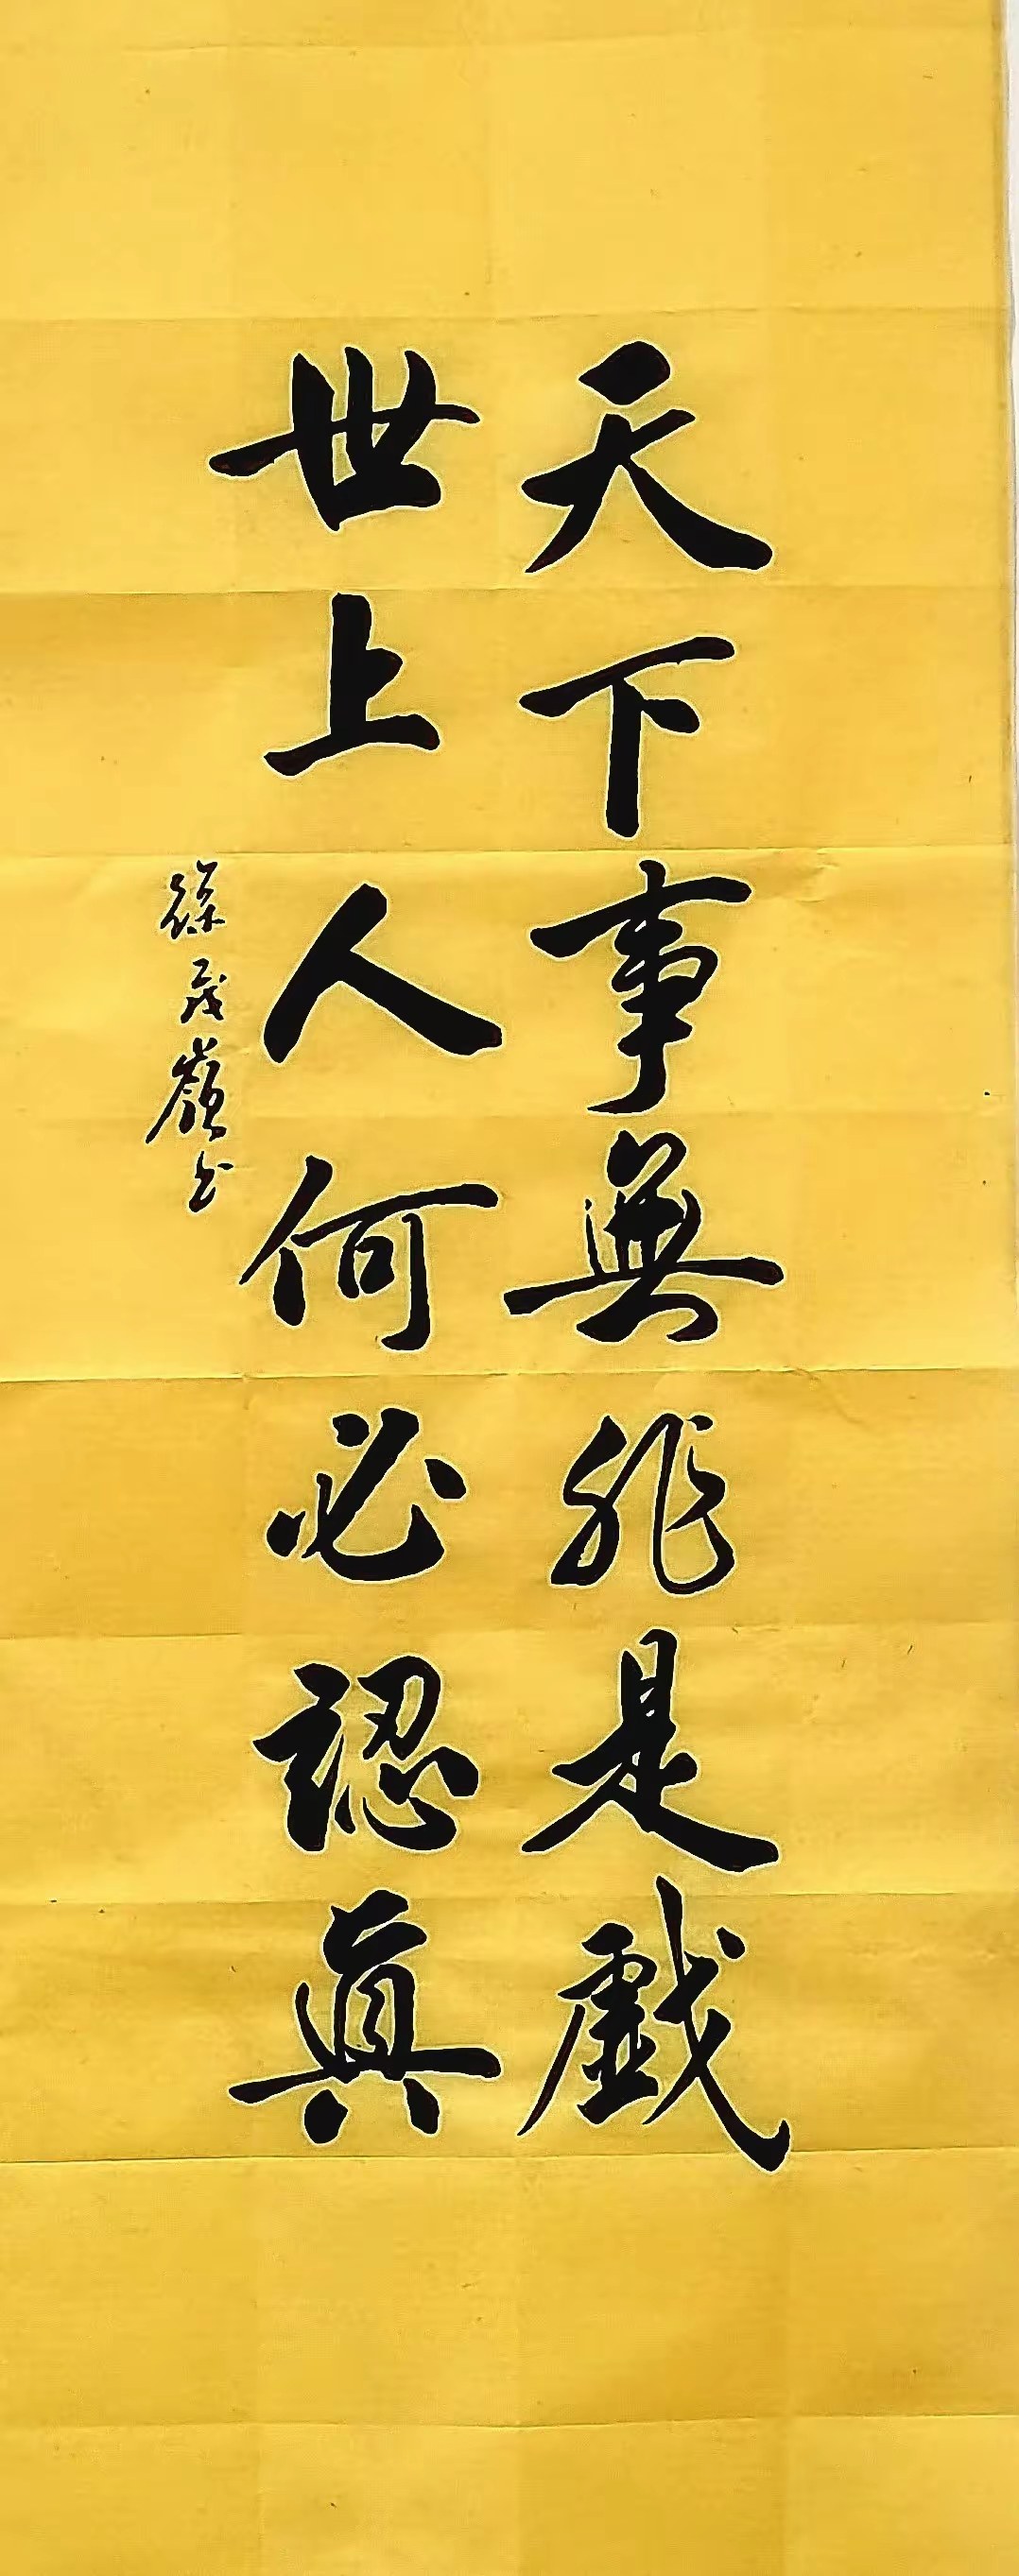 天下事無非是戲
世上人何必認真
徐茂嶺书